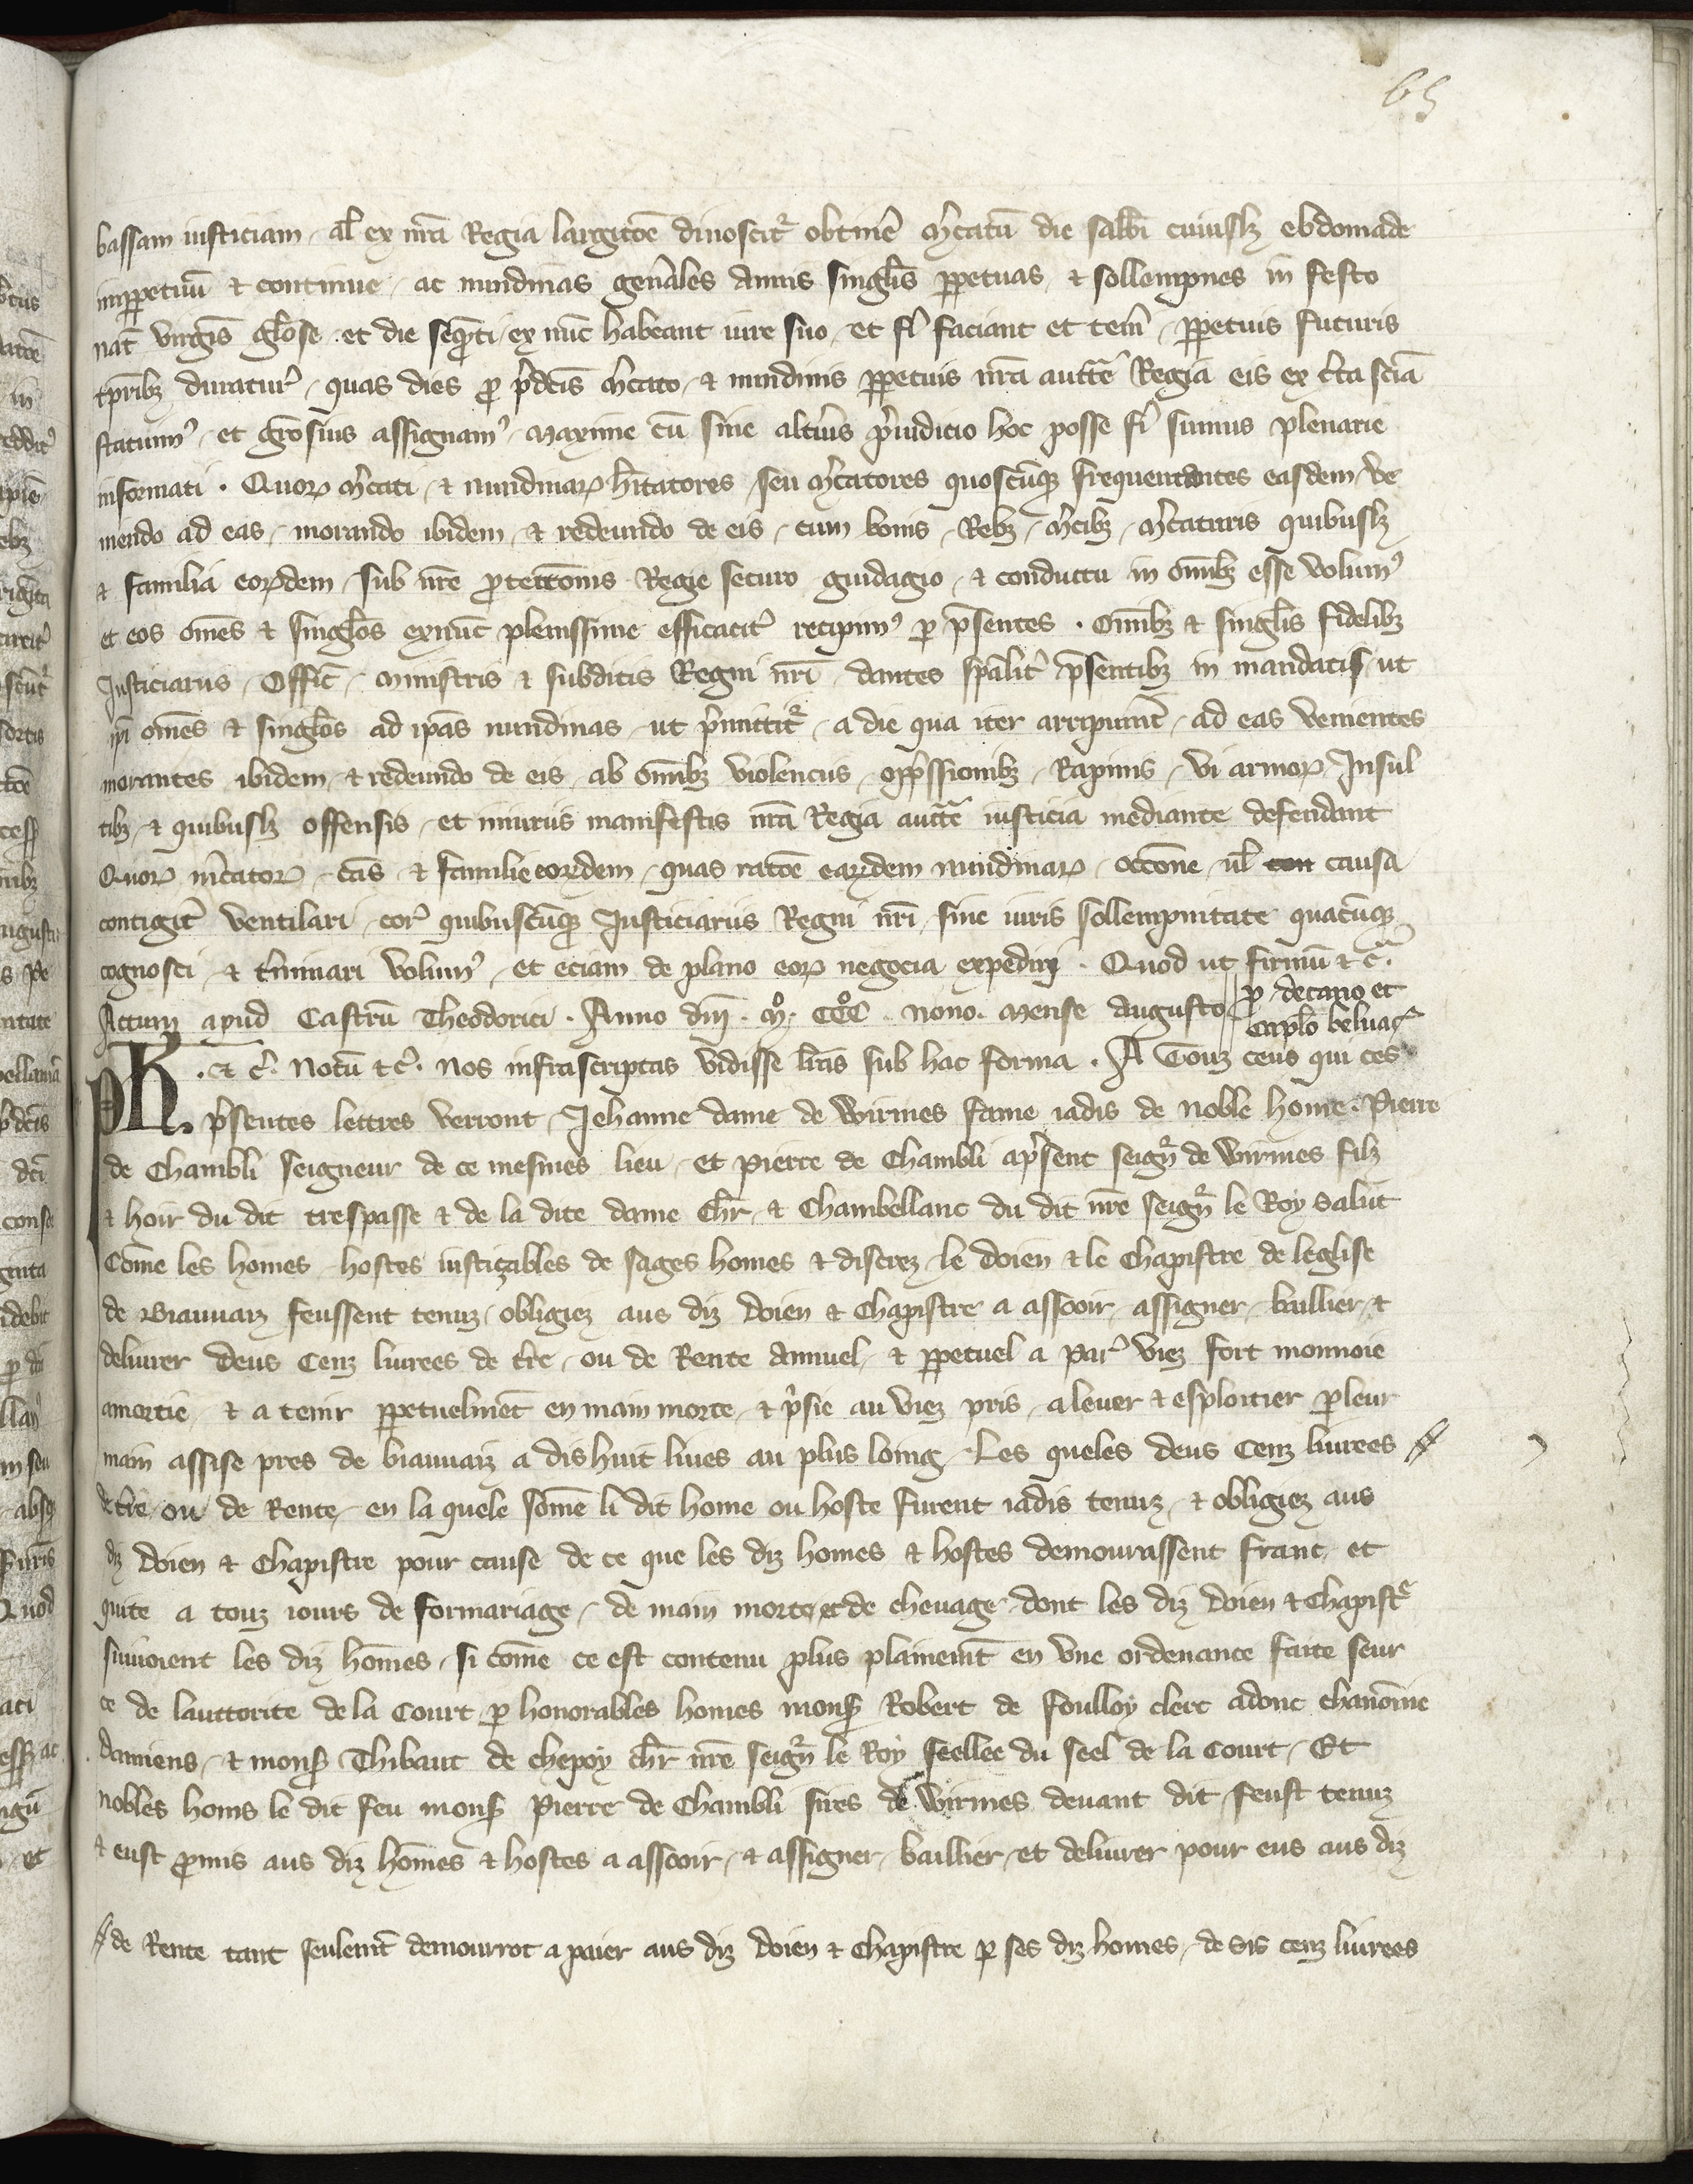 65
bassam iusticiam, al̃ ex nr̃a Regia largitõe dinoscit᷑ obtinẽ m̃catũ die sabb̃i cuiuslʒ ebdomade
imꝑpetuũ & continue, ac nundinas gen̾ales annis singl̃is ꝑpetuas, & sollempnes in festo
nat̃ virgĩs gl̃ose, et die seq̃nti, ex nũc habeant iure suo, et fi᷑ faciant et tem̃, ꝑpetuis futuris
tꝑribʒ duratur᷑, quas dies ꝓ p̃dc̃is m̃cato, & nundinis ꝑpetuis nr̃a auct̃e Regia eis ex c̃ta sciã
statuim᷒, et grõsius assignam᷒, Maxime cũ sine alt̾ius p̃iudicio hoc posse fi᷑ sumus plenarie
informati. Quoꝝ m̃cati, & nundinaꝝ hitatores, seu m̃catores quoscũqꝫ frequentantes easdem, ve
niendo ad eas, morando ibidem, & redeundo de eis, cum bonis, Rebʒ, m̃cibʒ, m̃caturis quibuslʒ
& familia eoꝝdem, sub nr̃e ꝓtectõnis Regie securo guidagio, & conductu in om̃ibʒ esse volum᷒
et eos om̃es & singl̃os exnũc plenissime efficacit᷑ recipim᷒ ꝑ p̃sentes. Om̃ibʒ & singl̃is fidelibʒ
Justiciariis, Offic̃, ministris & subditis Regni nr̃i, dantes sp̃alit᷑ p̃sentibʒ in mandatis, ut
ip̃i om̃es & singl̃os ad ip̃as nundinas, ut p̃mittit᷑, a die qua iter arripuint̃, ad eas venientes
morantes ibidem, & redeundo de eis, ab om̃ibʒ violenciis, opp̃ssionibʒ, Rapinis, vi armoꝝ, Insul
tibʒ, & quibuslʒ offensis, et iniuriis manifestis nr̃a Regia auct̃e iusticia mediante defendant
Quoꝝ m̃catoꝝ, cãs & familie eoꝝdem, quas ratõe eaꝝdem nundinaꝝ, occõne, ul̃ con causa
contigit᷑ ventilari, cor᷑ quibuscũqꝫ Justiciariis Regni nr̃i, sine iuris sollempnitate quacũqꝫ
cognosci, & t̃minari volum᷒, et eciam de plano eoꝝ negocia expediri. Quod ut firmũ & c̃.
Actum apud Castrũ Theodorici. Anno dñi. m̊. CCC̊. nono. mense augusto
ꝓ decano et
capl̃o beluac̃
Ph. & c̃. Notũ & c̃. nos infrascriptas vidisse lr̃as sub hac forma. A Touz ceus qui ces
p̃sentes lettres verront, Jehanne dame de Wirmes fame iadis de noble home. Pierre
de Chambli seigneur de ce mesmes lieu, et pierre de Chambli ap̃sent seign᷑ de Wirmes filz
& hoir du dit trespasse & de la dite dame ch̃r, & Chambellanc du dit nr̃e seign᷑ le Roy salut
Cõme les homes, hostes iusticables de sages homes & discrez, le doien & le Chapistre de leglise
de Biauuaiz feussent tenuz, obligiez aus diz doien & Chapistre a assooir, assigner, baillier, &
deliurer deus Cenz liurees de t̃re, ou de Rente Annuel, & ꝑpetuel a par᷑ viez fort monnoie
amortie, & a tenir ꝑpetuelmẽt en main morte, & p̃sie au viez pris, a leuer & esploitier ꝑ leur
main assise pres de biauuaiz a dishuit liues au plus loing, Les queles deus Cenz liurees
de t̃re, ou de Rente, en la quele sõme li dit home ou hoste furent iadis tenuz, & obligiez aus
diz doien & Chapistre pour cause de ce que les diz homes & hostes demourassent franc, et
quite a touz iours de formariage, de main morte, et de cheuage dont les diz doien & Chapistr᷑
suiuoient les diz hom̃es, si cõme ce est contenu plus plainemt̃ en vne ordenance faite seur
ce de lauttorite de la Court ꝑ honorables homes monsꝫ Robert de Foulloy clerc adonc chanõine
damiens, & monsꝫ Thibaut de chepoy ch̃r nr̃e seign᷑ le Roy seellee du seel de la Court, Et
nobles homs le dit feu monsꝫ pierre de Chambli sires de Wirmes deuant dit, feust tenuz
& eust ꝓmis aus diz hom̃es & hostes a assooir, & assigner, baillier, et deliurer pour eus aus diz
de Rente tant seulemt̃ demourrot a paier aus diz doien & Chapistre ꝑ ses diz homes, de sis cenz liurees